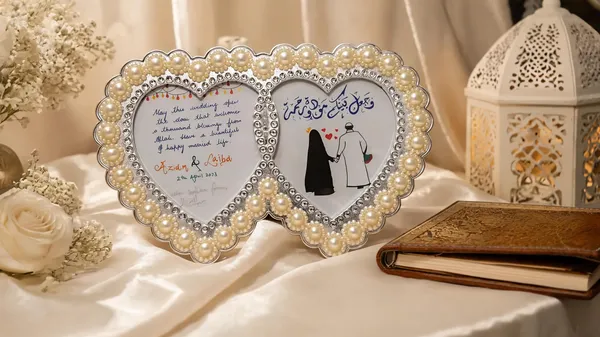 May this wedding open
the door that welcomes
a thousand blessings from
Allah. Have a beautiful
& happy married life.
Azim &
2nd April 2023
وجعل بينكم مودة ورحمة